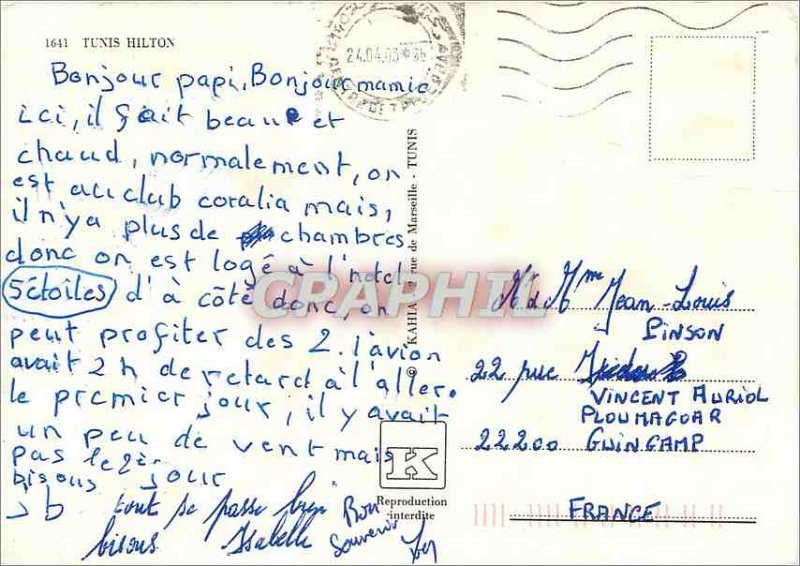 1641 TUNIS HILTON
24.04.03
Bonjour papi, Bonjour mamie
ici, il fait beau et
chaud, normalement, on
est au club coralia mais,
il n'y a plus de chambres
donc on est logé à l'hotel
5étoiles d'à côté donc, on
peut profiter des 2. l'avion
avait 2 h de retard à l'aller.
le premier jour, il y avait
un peu de vent mais
pas le 2èr jour
bisous
JB
tout se passe bien
bisous Isabelle
Bon
souvenir
© KAHIA rue de Marseille - TUNIS
CRAPHIL
K
Reproduction
interdite
M. & Mme Jean-Louis
PINSON
22 rue
VINCENT AURIOL
PLOUMAGOAR
22200 GUINGAMP
FRANCE